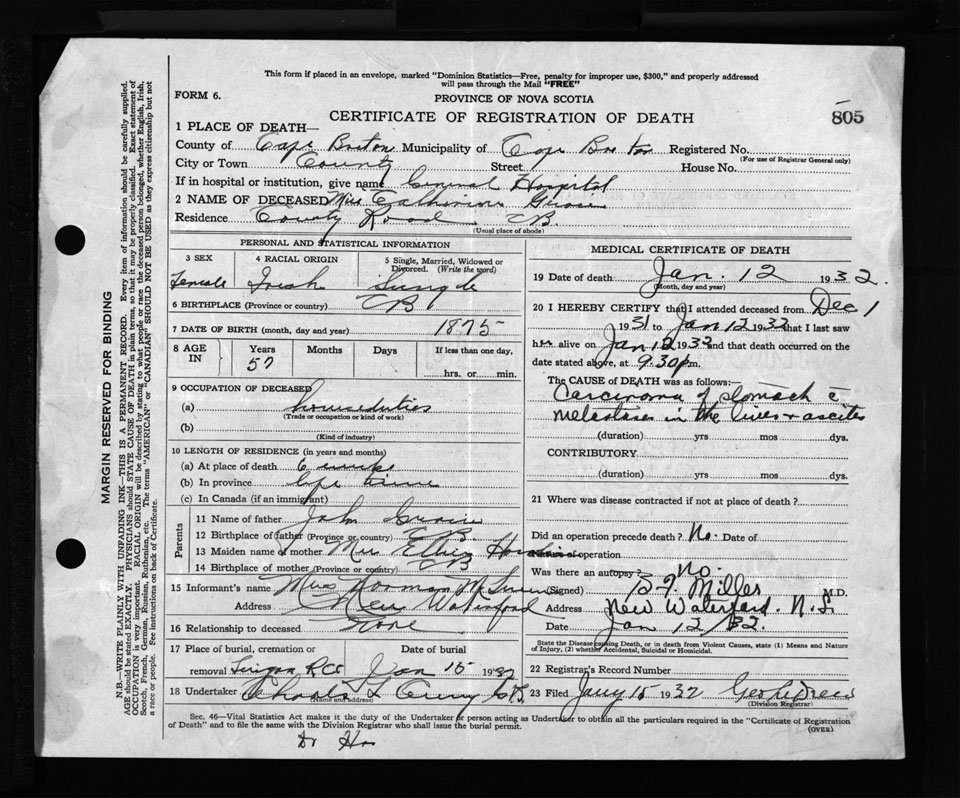 This form if placed in an envelope, marked "Dominion Statistics—Free, penalty for improper use, $300," and properly addressed
will pass through the Mail "FREE"
FORM 6.
PROVINCE OF NOVA SCOTIA
CERTIFICATE OF REGISTRATION OF DEATH
805
1 PLACE OF DEATH—
County of Cape Breton Municipality of Cape Breton Registered No.
(For use of Registrar General only)
City or Town County Street House No.
If in hospital or institution, give name General Hospital
2 NAME OF DECEASED Miss Catherine
Residence County Road CB.
(Usual place of abode)
PERSONAL AND STATISTICAL INFORMATION
3 SEX 4 RACIAL ORIGIN 5 Single, Married, Widowed or Divorced. (Write the word)
Female Irish Single
6 BIRTHPLACE (Province or country) CB
7 DATE OF BIRTH (month, day and year) 1875
8 AGE IN Years Months Days If less than one day,
57 hrs. or min.
9 OCCUPATION OF DECEASED
(a) houseduties
(Trade or occupation or kind of work)
(b)
(Kind of industry)
10 LENGTH OF RESIDENCE (in years and months)
(a) At place of death 6 weeks
(b) In province life time
(c) In Canada (if an immigrant)
Parents
11 Name of father John
12 Birthplace of father (Province or country) C.B.
13 Maiden name of mother Mrs
14 Birthplace of mother (Province or country) CB
15 Informant's name Mrs Norman
Address New Waterford
16 Relationship to deceased
17 Place of burial, cremation or removal Date of burial
Lingan R C Jan 15 1932
18 Undertaker & Curry
(Name and address)
MEDICAL CERTIFICATE OF DEATH
19 Date of death Jan. 12 1932.
(Month, day and year)
20 I HEREBY CERTIFY that I attended deceased from Dec 1
1931 to Jan 12 1932 that I last saw
her alive on Jan 12 1932 and that death occurred on the
date stated above, at 9.30 p m.
The CAUSE of DEATH was as follows:
Carcinoma of stomach c̄
metastases in the liver + ascites
(duration) yrs mos dys.
CONTRIBUTORY
(duration) yrs mos dys.
21 Where was disease contracted if not at place of death?
Did an operation precede death? No. Date of
operation
Was there an autopsy? No.
(Signed) Miller M.D.
Address New Waterford. N.S.
Date Jan 12/32.
State the Disease causing Death, or in death from Violent Causes, state (1) Means and Nature
of Injury, (2) whether Accidental, Suicidal or Homicidal.
22 Registrar's Record Number
23 Filed Jany 15 1932
(Division Registrar)
Sec. 46—Vital Statistics Act makes it the duty of the Undertaker or person acting as Undertaker to obtain all the particulars required in the "Certificate of Registration
of Death" and to file the same with the Division Registrar who shall issue the burial permit.
(OVER)
Dr
MARGIN RESERVED FOR BINDING
N.B.—WRITE PLAINLY WITH UNFADING INK—THIS IS A PERMANENT RECORD. Every item of information should be carefully supplied.
AGE should be stated EXACTLY. PHYSICIANS should STATE CAUSE OF DEATH in plain terms, so that it may be properly classified. Exact statement of
OCCUPATION is very important. RACIAL ORIGIN will be described by stating to what people or race the deceased person belonged, whether English, Irish,
Scotch, French, German, Russian, Ruthenian, etc. The terms "AMERICAN" or "CANADIAN" SHOULD NOT BE USED as they express citizenship but not
a race or people. See instructions on back of Certificate.